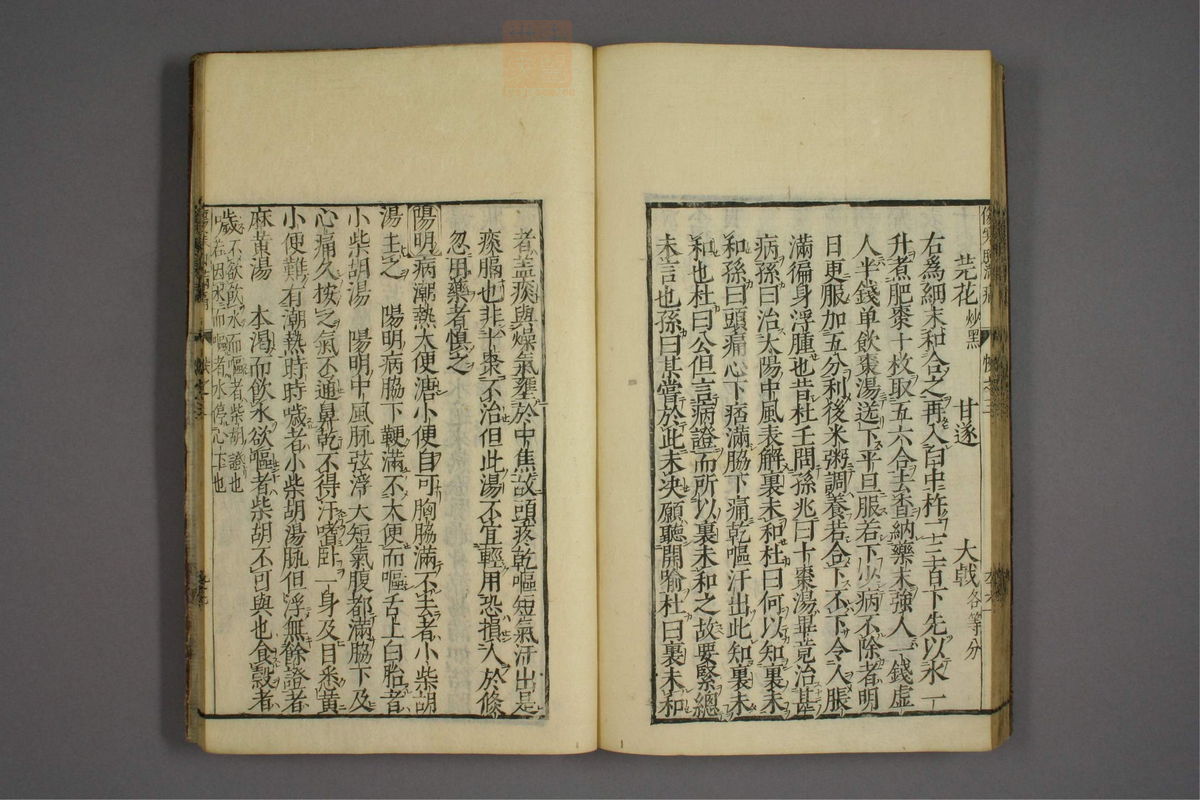 芫花炒黑　甘遂　大戟各等分
右為細末和合之再入臼中杵一二百下先以水一
升煮肥棗十枚取五六合去棗納藥末強人一錢虛
人半錢单飲棗湯送下平旦服若下少病不除者明
日更服加五分利後米粥調養若合下不下令人脹
滿徧身浮腫也昔杜壬問孫兆曰十棗湯畢竟治甚
病孫曰治太陽中風表解裏未和杜曰何以知裏未
和孫曰頭痛心下痞滿脇下痛乾嘔汗出此知裏未
和也杜曰公但言病證而所以裏未和之故要緊總
未言也孫曰某嘗於此未决願聽開喻杜曰裏未和
者盖痰與燥氣壅於中焦故頭疼乾嘔短氣汗出是
痰膈也非十棗不治但此湯不宜輕用恐損人於倏
忽用藥者慎之
陽明病潮熱大便溏小便自可胸脇滿不去者小柴胡
湯主之　陽明病脇下鞕滿不大便而嘔舌上白胎者
小柴胡湯　陽明中風脉弦浮大短氣腹都滿脇下及
心痛久按之氣不通鼻乾不得汗嗜卧一身及目悉黃
小便難有潮熱時時噦者小柴胡湯脉但浮無餘證者
麻黃湯　本渴而飲水欲嘔者柴胡不可與也食穀者
噦不飲飲水而嘔者柴胡證也
若因水而嘔者水停心下也